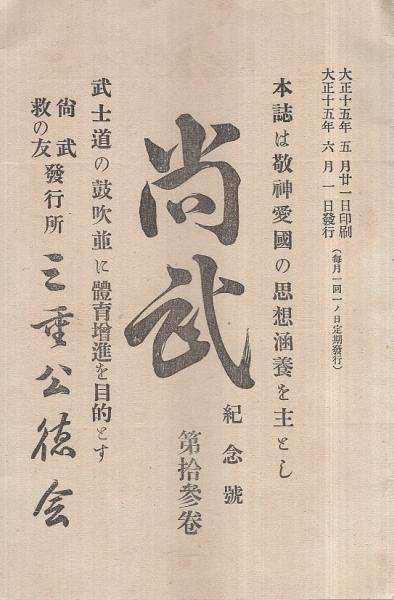 大正十五年五月廿一日印刷
大正十五年六月一日發行
(每月一回一ノ日定期發行)
本誌は敬神愛國の思想涵養を主とし
尚武
紀念號
第拾參卷
武士道の鼓吹並に體育增進を目的とす
尙武
救の友
發行所
三重公徳会